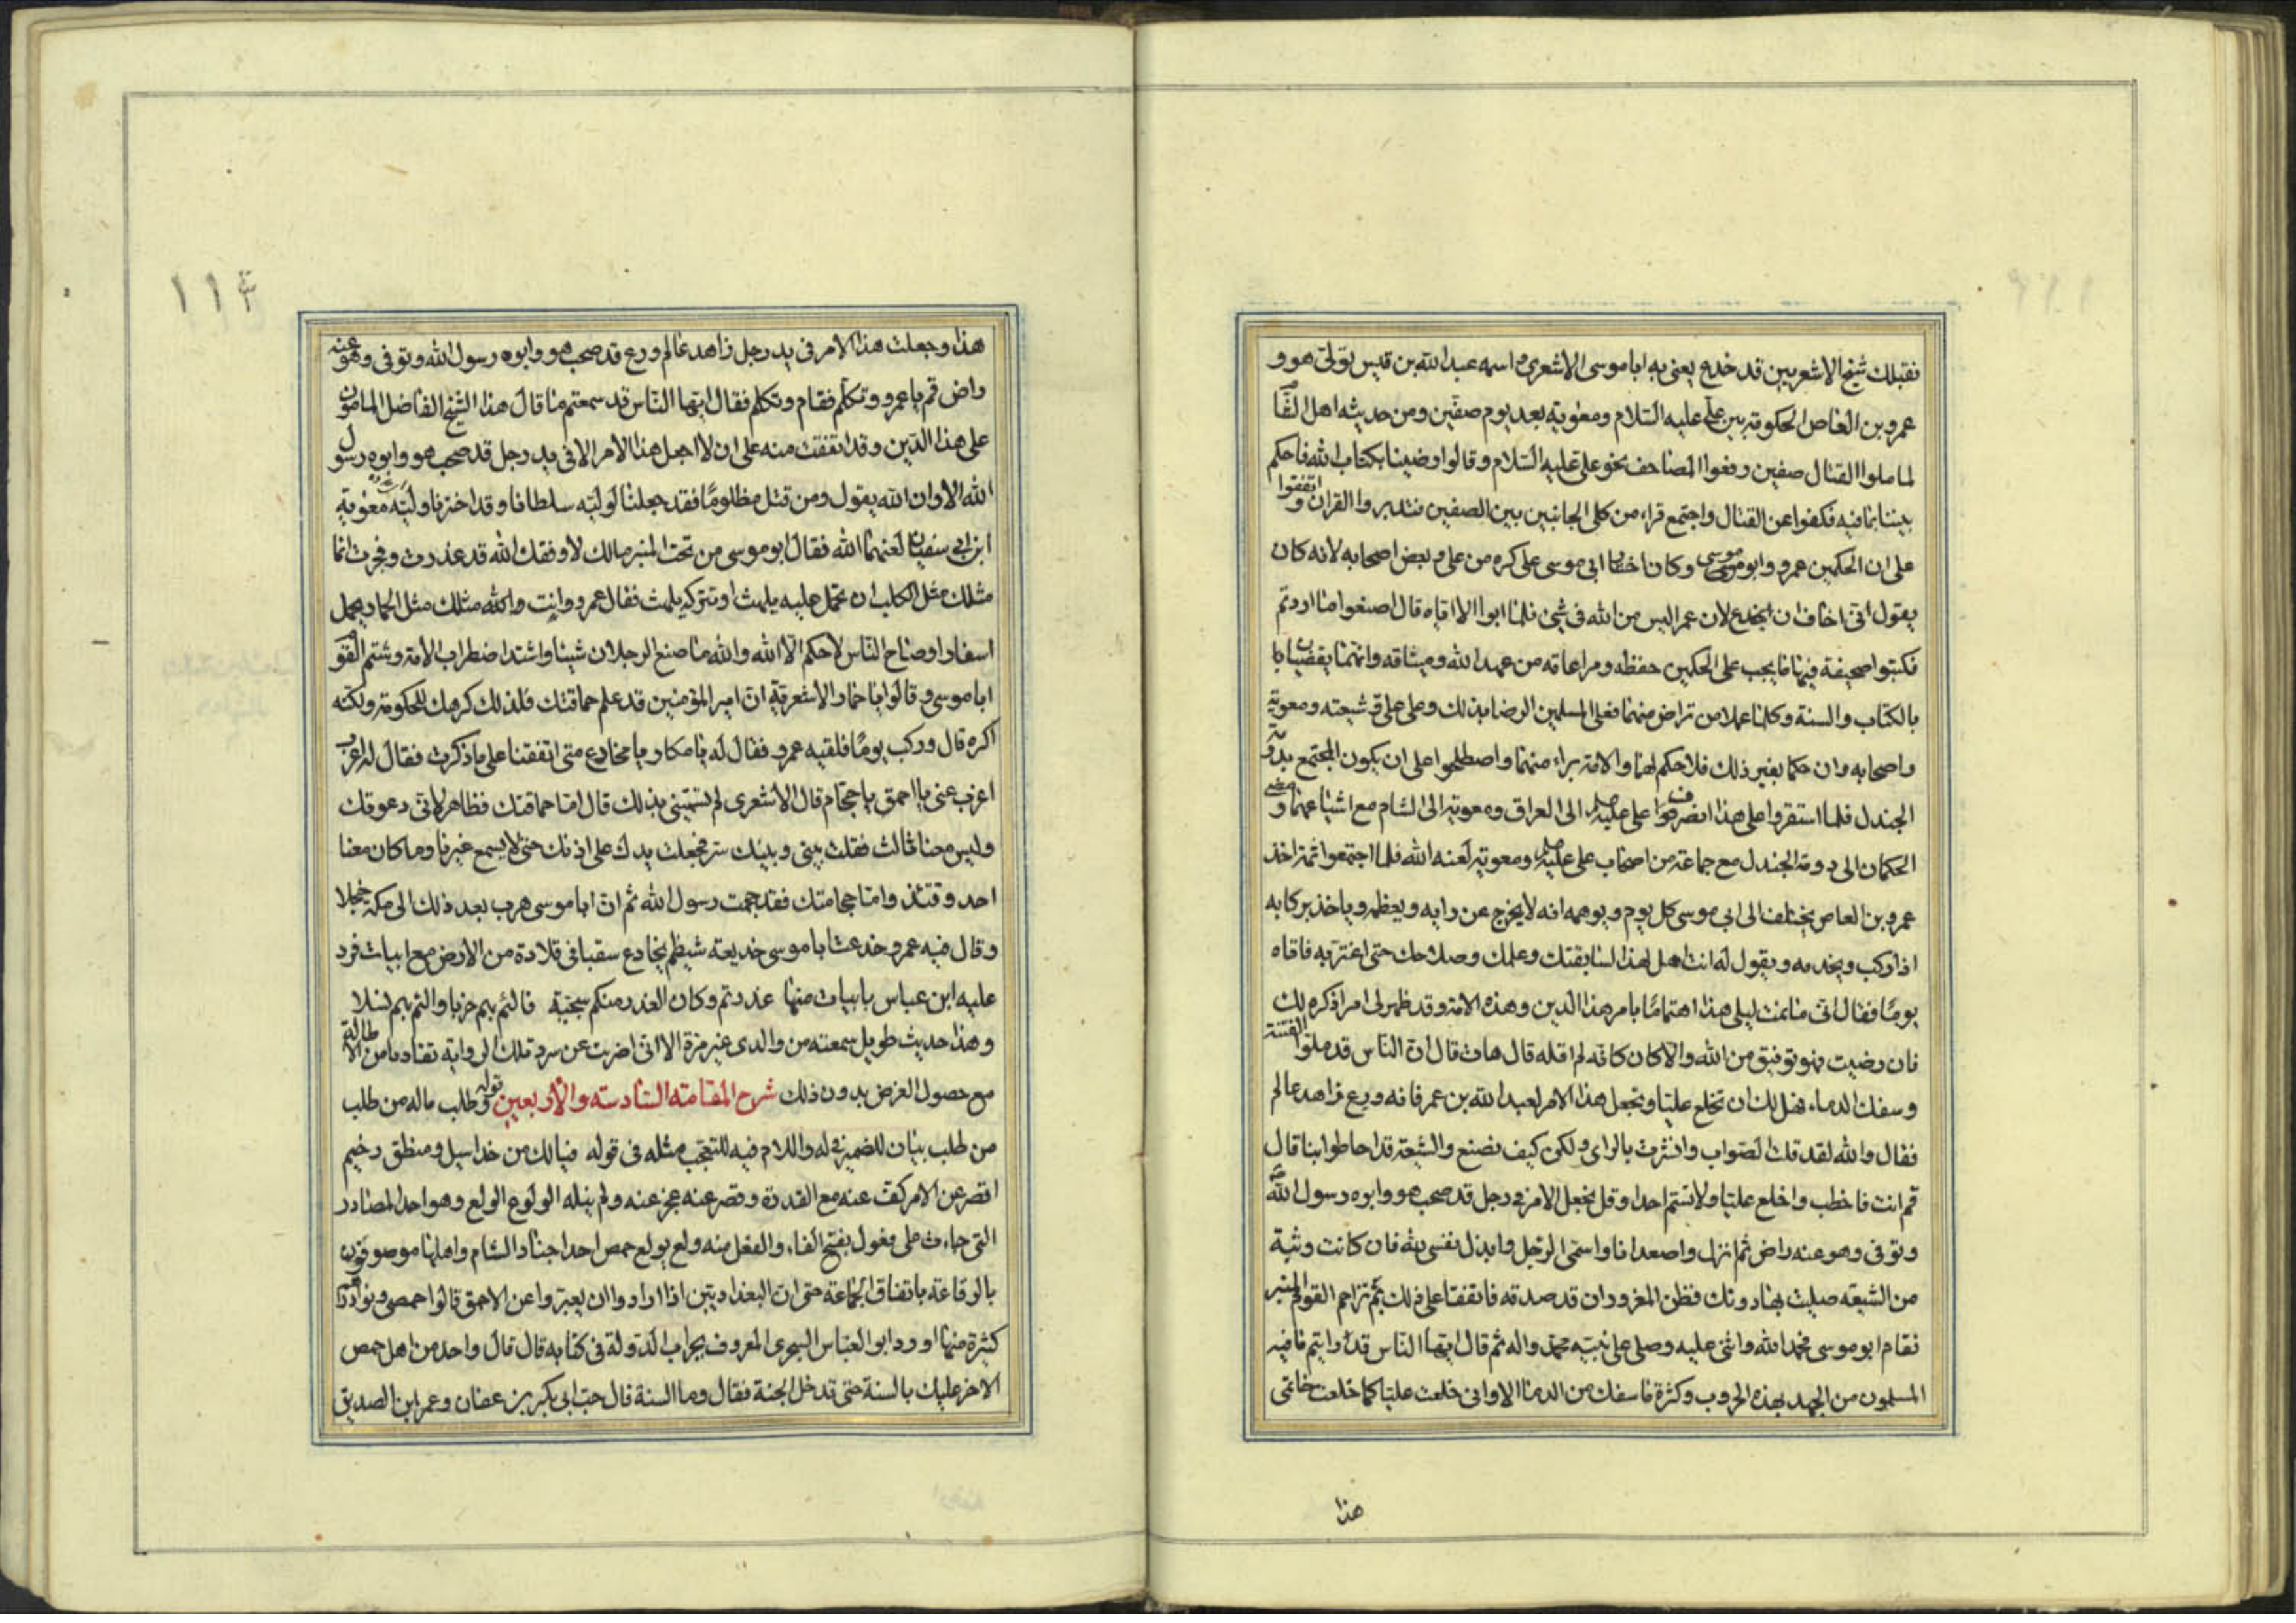 فقبلك شيخ الاشعريين قد خدع يعنى به ابا موسى الاشعرى و اسمه عبد الله بن قيس تولى هو و
عمرو بن العاص الحكومة بين على عليه السلام ومعوية بعد يوم صفين ومن حديثه اهل الشام
لما ملوا القتال صفين رفعوا المصاحف نحو على عليه السلام وقالوا رضينا بكتاب الله فاحكم
بيننا بما فيه فكفوا عن القتال واجتمع قراء من كلى الجانبين بين الصفين فتدبروا القران واتفقوا
على ان الحكمين عمرو وابو موسى وكان اخيار ابى موسى على كره من على وبعض اصحابه لانه كان
يقول انى اخاف ان يخدع لان عمرا ليس من الله فى شئ فلما ابوا الا اياه قال اصنعوا ما اردتم
فكتبوا صحيفة فيها ما يجب على الحكمين حفظه ومراعاته من عهد الله وميثاقه وانهما يقضيان
بالكتاب والسنة وكلما عملا من تراض منهما فعلى المسلمين الرضا بذلك وعلى على وشيعته ومعوية
واصحابه وان حكما بغير ذلك فلا حكم لهما والامة براء منهما واصطلحوا على ان يكون المجتمع بدومة
الجندل فلما استقروا على هذا انصرفوا على عليه الى العراق ومعوية الى الشام مع اشياعهما ومضى
الحكمان الى دومة الجندل مع جماعة من اصحاب على عليه ومعوية لعنه الله فلما اجتمعوا ثمة اخذ
عمرو بن العاص يختلف الى ابى موسى كل يوم ويوهمه انه لا يخرج عن رايه ويعظمه وياخذ بركابه
اذا ركب ويخدمه ويقول له انت اهل لهذا لسابقتك وعلمك وصلاحك حتى اغتر به فاتاه
يوما فقال انى ما نمت ليلى هذا اهتماما بامر هذا الدين وهذه الامة وقد ظهر لى امرا ذكره لك
فان رضيت فهو توفيق من الله والا كان كانه لم اقله قال هات قال ان الناس قد ملوا الفتنة
وسفك الدماء فهل لك ان تخلع عليا وتجعل هذا الامر لعبد الله بن عمر فانه ورع زاهد عالم
فقال والله لقد قلت الصواب واشرت بالراى ولكن كيف نصنع والشيعة قد احاطوا بنا قال
قم انت فاخطب واخلع عليا ولا تسم احدا وقل نجعل الامر فى رجل قد صحب هو وابوه رسول الله
وتوفى وهو عنه راض ثم انزل واصعد انا واسمى الرجل وابذل نفسى لله فان كانت وثبة
من الشيعة صليت بها دونك فظن المغرور ان قد صدقه فاتفقا على ذلك ثم تزاحم القوم المنبر
فقام ابو موسى فحمد الله واثنى عليه وصلى على نبيه محمد واله ثم قال ايها الناس قد رايتم ما فيه
المسلمون من الجهد بهذه الحروب وكثرة ما سفك من الدماء الا وانى خلعت عليا كما خلعت خاتمى
هذا
١١٤
هذا وجعلت هذا الامر فى يد رجل زاهد عالم ورع قد صحب هو وابوه رسول الله وتوفى وهو عنه
راض قم يا عمرو وتكلم فقام وتكلم فقال ايها الناس قد سمعتم ما قال هذا الشيخ الفاضل المامون
على هذا الدين وقد اتفقت منه على ان لا اجعل هذا الامر الا فى يد رجل قد صحب هو وابوه رسول
الله الا وان الله يقول ومن قتل مظلوما فقد جعلنا لوليه سلطانا وقد اخترنا وليه معوية
ابن ابى سفيان لعنهما الله فقال ابو موسى من تحت المنبر مالك لا وفقك الله قد غدرت وفجرت انما
مثلك مثل الكلب ان تحمل عليه يلهث او تتركه يلهث فقال عمرو وانت والله مثلك مثل الحمار يحمل
اسفارا وصاح الناس لا حكم الا الله والله ما صنع الرجلان شيئا واشتد اضطراب الامة وشتم القوم
ابا موسى وقالوا يا حمار الاشعرية ان امير المؤمنين قد علم حماقتك فلذلك كرهك للحكومة ولكنه
اكره قال وركب يوما فلقيه عمرو فقال له يا مكار يا مخادع متى اتفقنا على ما ذكرت فقال له اغرب
اعزب عنى يا احمق يا حجام قال الاشعرى لم تسمينى بذلك قال اما حماقتك فظاهر لانى دعوتك
وليس معنا ثالث فقلت بينى وبينك سر فجعلت يدك على اذنك حتى لا يسمع غيرنا وما كان معنا
احد وقتئذ واما حجامتك فقد حجمت رسول الله ثم ان ابا موسى هرب بعد ذلك الى مكة خجلا
وقال فيه عمرو خدعت ابا موسى خديعة شيظم يخادع سقبا فى قلادة من الارض مع ابيات فرد
عليه ابن عباس بابيات منها غدرتم وكان الغدر منكم سجية
وهذا حديث طويل سمعته من والدى غير مرة الا انى اضربت عن سرد تلك الرواية تفاديا من الاطالة
مع حصول الغرض بدون ذلك شرح المقامة السادسة والاربعين قوله وطلب ماله من طلب
من طلب بيان للضمير فى له واللام فيه للتعجب مثله فى قوله فيالك من خد اسيل ومنطق رخيم
اقصر عن الامر كف عنه مع القدرة وقصر عنه عجز عنه ولم ينله الولوع الولع وهو احد المصادر
التى جاءت على فعول بفتح الفاء والفعل منه ولع يولع حمص احد اجناد الشام واهلها موصوفون
بالرقاعة باتفاق الجماعة حتى ان البغداديين اذا ارادوا ان يعبروا عن الاحمق قالوا حمصى ونوادرهم
كثيرة منها اورد ابو العباس السجزى المعروف بجراب الدولة فى كتابه قال قال واحد من اهل حمص
الاخر عليك بالسنة حتى تدخل الجنة فقال وما السنة قال حب ابى بكر بن عفان وعمر ابن الصديق